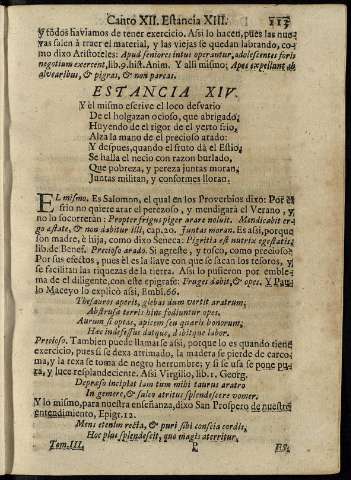 Canto XII. Estancia XIII. 113
y todos haviamos de tener exercicio. Assi lo hacen, pues las nue-
vas salen à traer el material, y las viejas se quedan labrando, co-
mo dixo Aristoteles: Apud seniores intus operantur, adolescentes foris
negotium exercent, lib. 9. hist. Anim. Y assi mismo; Apes expellunt de
alvearibus, & pigras, & non parcas.
ESTANCIA XIV.
Y el mismo escrive el loco desvario
De el holgazan ocioso, que abrigado,
Huyendo de el rigor de el yerto frio,
Alza la mano de el precioso arado:
Y despues, quando el fruto dà el Estio,
Se halla el necio con razon burlado,
Que pobreza, y pereza juntas moran,
Juntas militan, y conformes lloran.
EL mismo. Es Salomon, el qual en los Proverbios dixo: Por el
frio no quiere arar el perezoso, y mendigarà el Verano, y
no lo socorreràn: Propter frigus piger arare noluit. Mandicabit er-
go æstate, & non dabitur illi, cap. 20. Juntas moran. Es assi, porque
son madre, è hija, como dixo Seneca: Pigritia est nutrix egestatis,
lib. de Benef. Precioso arado. Si agreste, y tosco, como precioso?
Por sus efectos, pues èl es la llave con que se sacan los tesoros, y
se facilitan las riquezas de la tierra. Assi lo pusieron por emble-
ma de el diligente, con este epigrafe: Fruges dabit, & opes. Y Pau-
lo Maceyo lo explicò assi, Embl. 66.
Thesauros aperit, glebas dum vertit aratrum,
Abstrusa terris hinc fodiuntur opes.
Aurum si optas, apicem seu quæris honorum,
Hac indefessus datque, dabitque labor.
Precioso. Tambien puede llamarse assi, porque lo es quando tiene
exercicio, pues si se dexa arrimado, la madera se pierde de carco-
ma, y la rexa se toma de negro herrumbre; y si se usa se pone pu-
ra, y luce resplandeciente. Assi Virgilio, lib. 1. Georg.
Depresso incipiat jam tum mihi taurus aratro
In gemere, & sulco atritus splendescere vomer.
Y lo mismo, para nuestra enseñanza, dixo San Prospero de nuestro
entendimiento, Epigr. 12.
Mens etenim recta, & puri sibi conscia cordis,
Hoc plus splendescit, quo magis atteritur.
Tom. III. P Es,